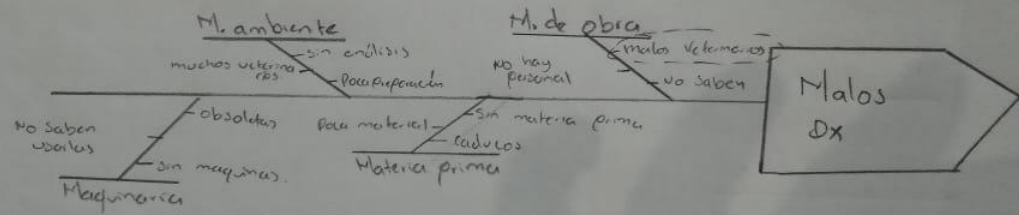 M. ambiente
sin análisis
muchos veterinarios
Poca preparación
M. de obra
malos veterinarios
No hay
personal
No saben
Malos
Dx
No saben
usarlas
obsoletas
sin maquinas.
Maquinaria
Poca material
sin materia prima
caducos
Materia prima